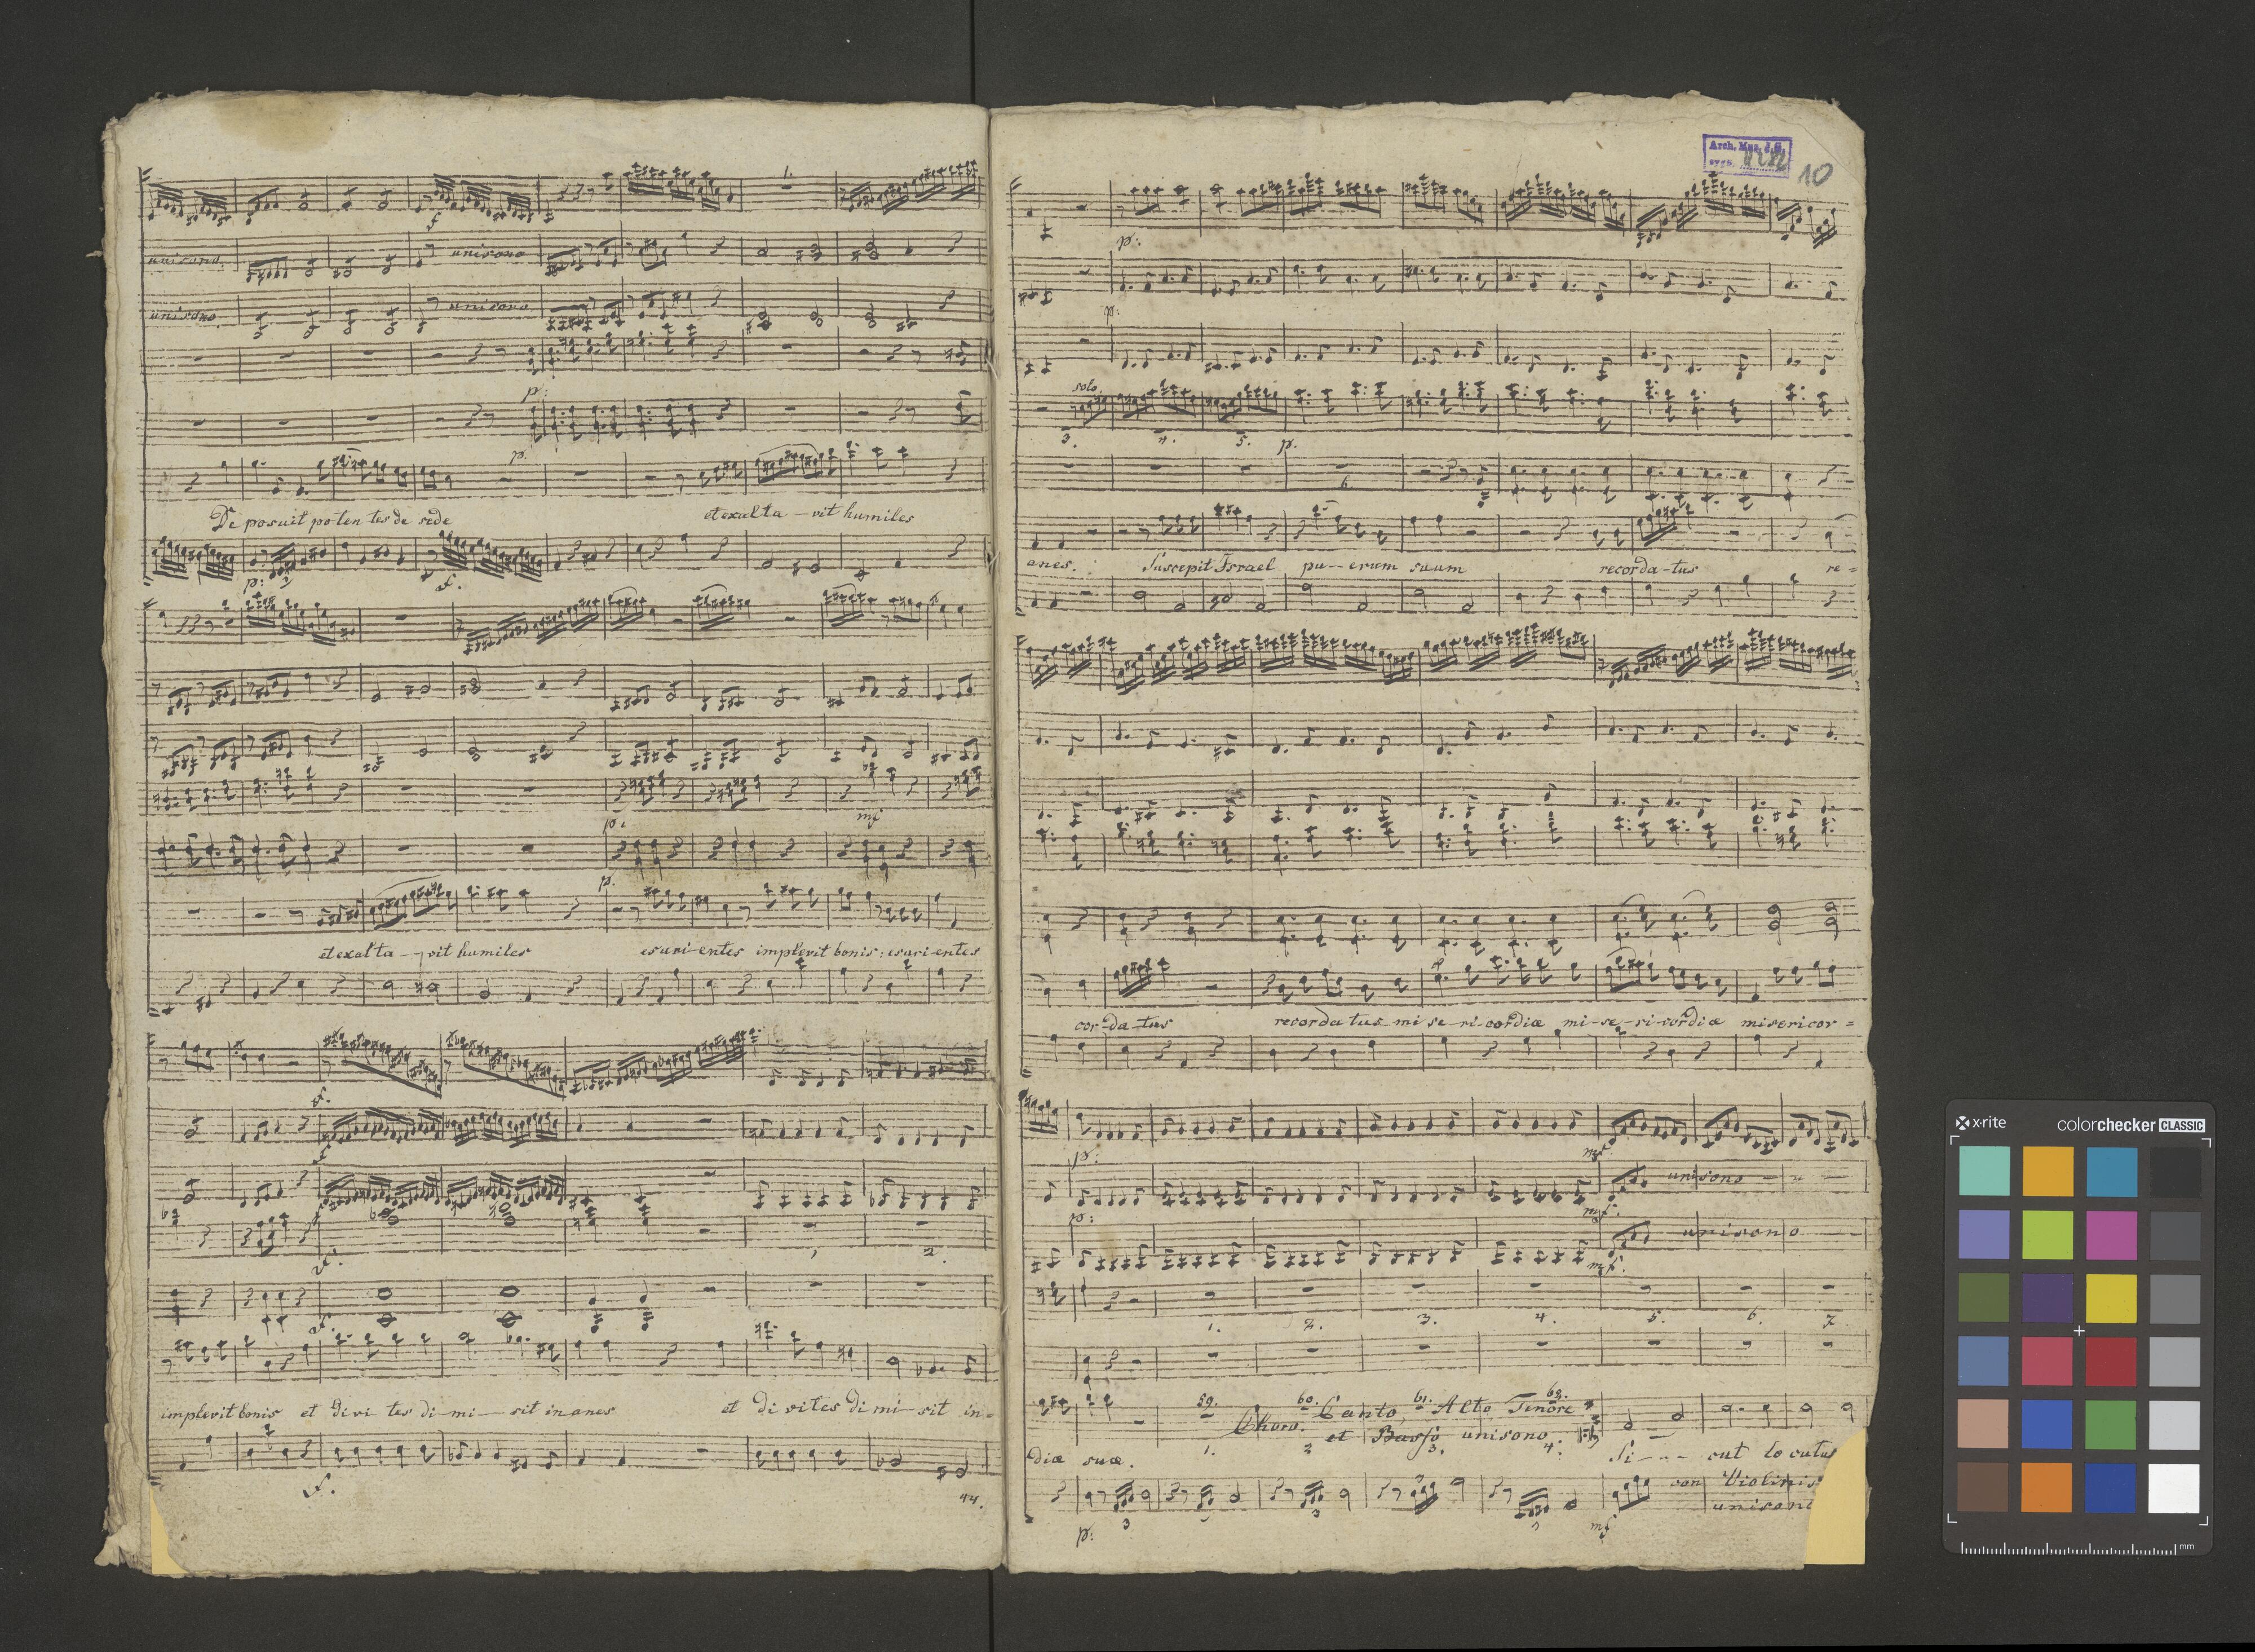 unisono. unisono
unisono. unisono
f
p:
p.
De posuit poten tes de sede et exalta - vit humiles
p: f.
p:
mf
p.
et exalta - vit humiles esuri-entes implevit bonis: esuri-entes
f.
f
f.
1 2.
f.
implevit bonis et divi tes di-mi-sit inanes et divites dimi-sit in=
f.
44.
Arch. Muz. J.G.
sygn.
10
p:
p:
solo
3. 4. 5. p.
6
anes. Suscepit Israel pu--erum suum recorda-tus re=
cor-da-tus recordatus mi se-ri-cordiæ mi-se-ri-cordiæ misericor=
p: mf
unisono
p: mf.
unisono
mf.
1. 2. 3. 4. 5. 6. 7
59. 60. 61. 62.
Choro. Canto, Alto Tenore
et Basso unisono.
1. 2 3. 4.
diæ suæ. Si--- cut locutus
con Violinis
unisono
p: 3 3 mf
x-rite colorchecker CLASSIC
mm